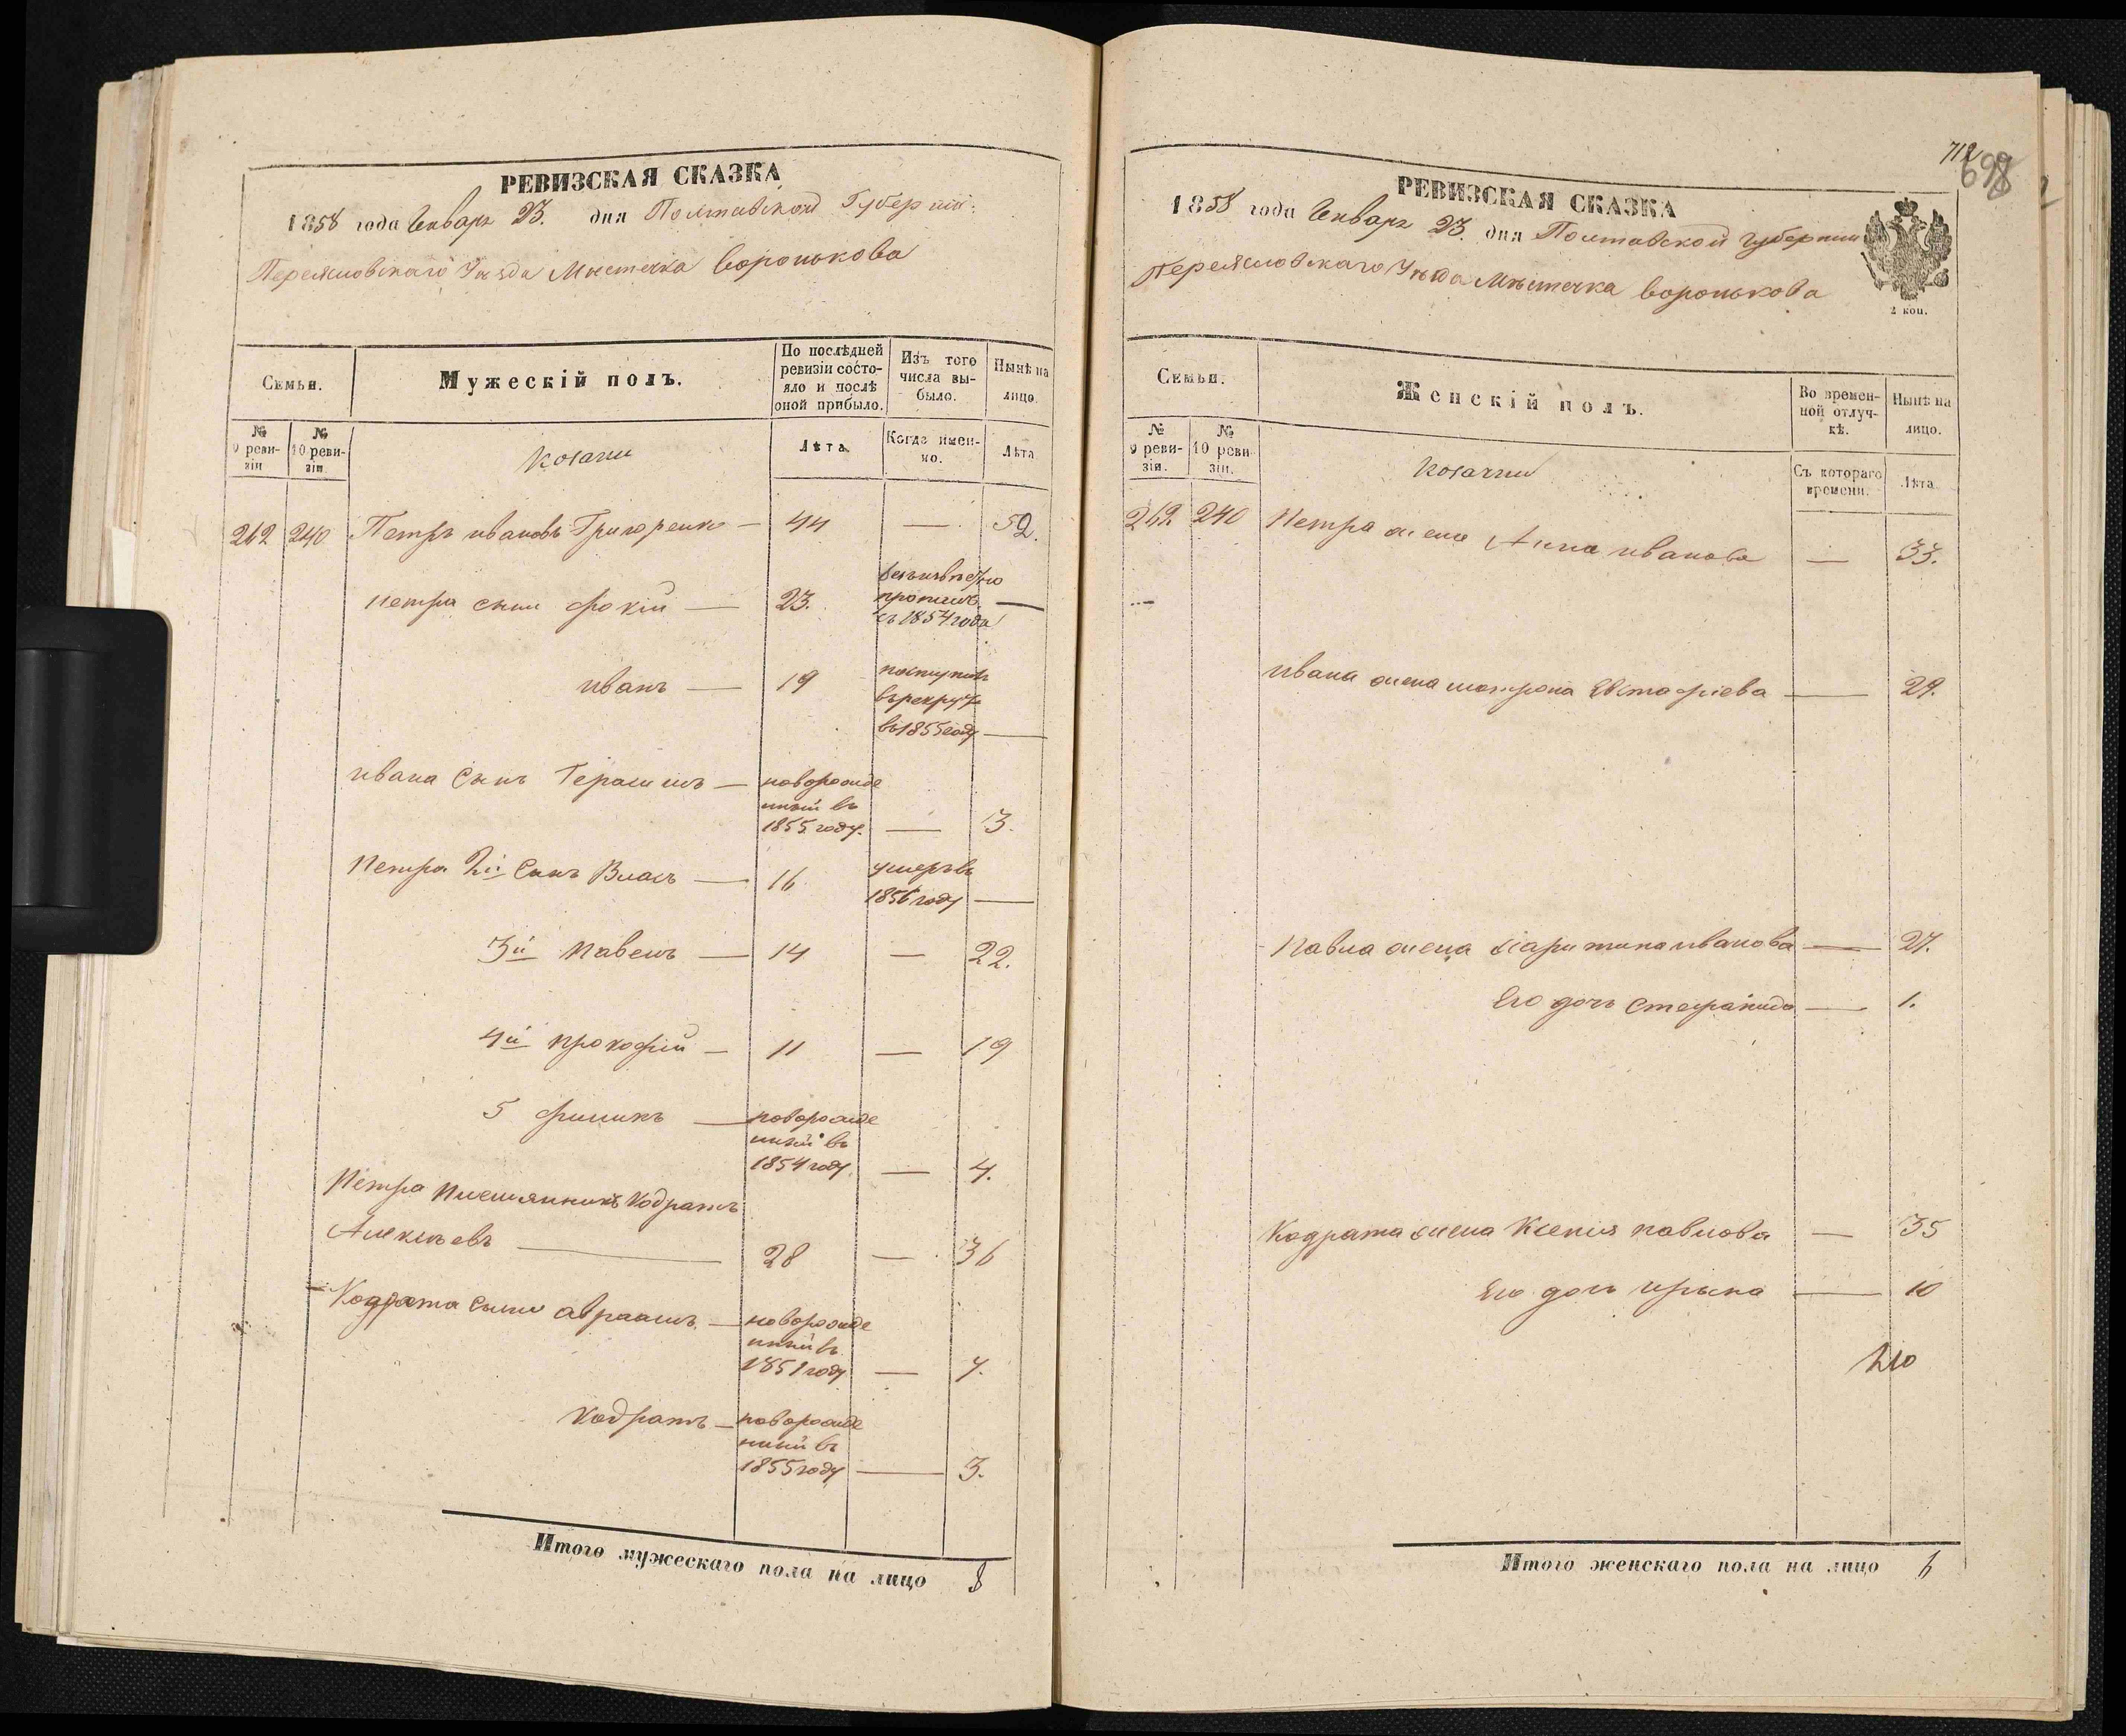 РЕВИЗСКАЯ СКАЗКА
1858 года Генваря 23. дня Полтавской Губерніи
Переясловскаго Уѣзда Мѣстечка Воронькова
Семьи.
Мужескій полъ.
По послѣдней ревизіи состо-
яло и послѣ
оной прибыло.
Изъ того
числа вы-
было.
Нынѣ на
лицо.
№
9 реви-
зіи
№
10 реви-
зіи
козаки
Лѣта.
Когда имен-
но.
Лѣта
262 240 Петръ ивановъ Григоренко — 44 — 52.
петра сынъ фокій — 23.
пропалъ —
съ 1854 года
иванъ — 19 поступилъ
въ рекруты
въ 1855 году —
ивана Сынъ Герасимъ — новорожде
нный въ
1855 году. — 3.
Петра 2й Сынъ Власъ — 16 умеръ въ
1856 году —
3й павелъ — 14 — 22.
4й прокофій — 11 — 19
5 филипъ — новорожде
нный въ
1854 году — 4.
Петра племянникъ Кодратъ
Алексѣевъ — 28 — 36
Кодрата Сынъ авраамъ — новорожде
нный въ
1851 году — 7.
Кодратъ — новорожде
нный въ
1855 году — 3.
Итого мужескаго пола на лицо 8
712
698
РЕВИЗСКАЯ СКАЗКА
1858 года Генваря 23. дня Полтавской губерніи
Переясловскаго Уѣзда Мѣстечка Воронькова
2 коп.
Семьи.
Женскій полъ.
Во времен-
ной отлуч-
кѣ.
Нынѣ на
лицо.
№
9 реви-
зіи.
№
10 реви-
зіи.
козачки
Съ котораго
времени.
Лѣта
262. 240 Петра жена Анна иванова — 33.
ивана жена матрона Евстафіева — 29.
Павла жена харитина иванова — 27.
Его дочь Стефанида — 1.
Кодрата жена Ксенія павлова — 35
Его дочь ирына — 10
Итого женскаго пола на лицо 6